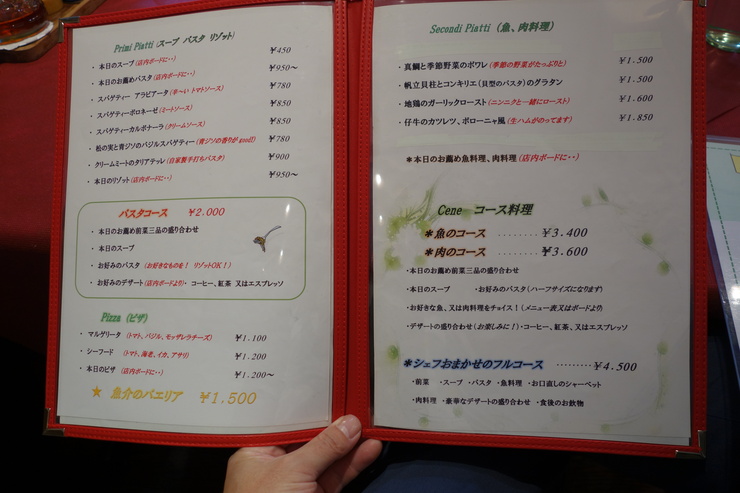 Primi Piatti (スープ パスタ リゾット)
・本日のスープ(店内ボードに・・) ¥450
・本日のお薦めパスタ(店内ボードに・・) ¥950～
・スパゲティー アラビアータ(辛～い トマトソース) ¥780
・スパゲティーボロネーゼ(ミートソース) ¥850
・スパゲティーカルボナーラ(クリームソース) ¥850
・松の実と青ジソのバジルスパゲティー(青ジソの香りが good!) ¥780
・クリームミートのタリアテッレ(自家製手打ちパスタ) ¥900
・本日のリゾット(店内ボードに・・) ¥950～
パスタコース ¥2.000
・本日のお薦め前菜三品の盛り合わせ
・本日のスープ
・お好みのパスタ(お好きなものを! リゾットOK!)
・お好みのデザート(店内ボードより)・コーヒー、紅茶 又はエスプレッソ
Pizza (ピザ)
・マルゲリータ (トマト、バジル、モッザレラチーズ) ¥1.100
・シーフード (トマト、海老、イカ、アサリ) ¥1.200
・本日のピザ (店内ボードに・・) ¥1.200～
★ 魚介のパエリア ¥1.500
Secondi Piatti (魚、肉料理)
・真鯛と季節野菜のポワレ(季節の野菜がたっぷりと) ¥1.500
・帆立貝柱とコンキリエ(貝型のパスタ)のグラタン ¥1.500
・地鶏のガーリックロースト(ニンニクと一緒にロースト) ¥1.600
・仔牛のカツレツ、ボローニャ風(生ハムがのってます) ¥1.850
＊本日のお薦め魚料理、肉料理(店内ボードに・・)
Cene コース料理
＊魚のコース ………¥3.400
＊肉のコース ………¥3.600
・本日のお薦め前菜三品の盛り合わせ
・本日のスープ ・お好みのパスタ(ハーフサイズになります)
・お好きな魚、又は肉料理をチョイス!(メニュー表又はボードより)
・デザートの盛り合わせ(お楽しみに!)・コーヒー、紅茶、又はエスプレッソ
＊シェフおまかせのフルコース ………¥4.500
・前菜 ・スープ ・パスタ ・魚料理 ・お口直しのシャーベット
・肉料理 ・豪華なデザートの盛り合わせ ・食後のお飲物